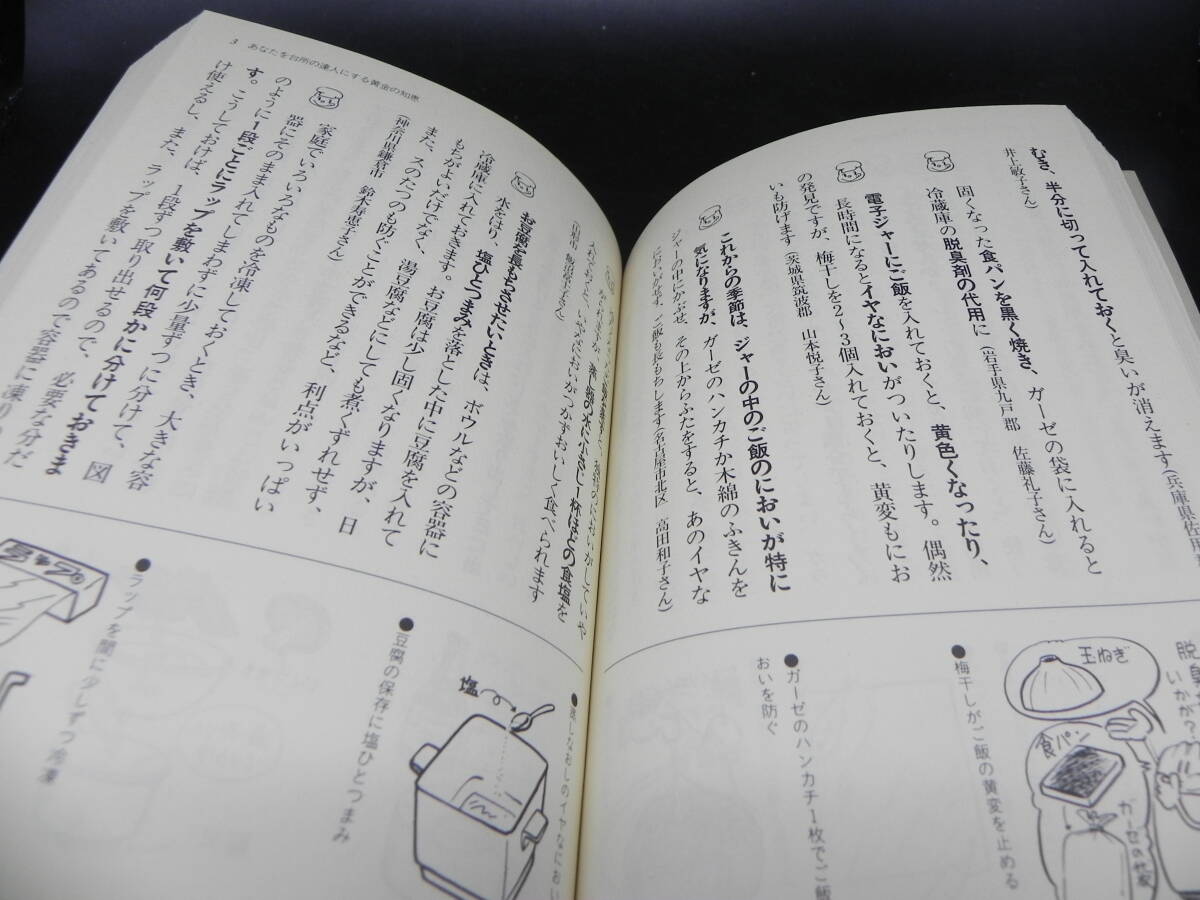 むき、半分に切って入れておくと臭いが消えます(兵庫県佐用
井上敏子さん)
固くなった食パンを黒く焼き、ガーゼの袋に入れると
冷蔵庫の脱臭剤の代用に(岩手県九戸郡 佐藤礼子さん)
電子ジャーにご飯を入れておくと、黄色くなったり、
長時間になるとイヤなにおいがついたりします。偶然
の発見ですが、梅干しを2~3個入れておくと、黄変もにお
いも防げます(茨城県筑波郡 山本悦子さん)
これからの季節は、ジャーの中のご飯のにおいが特に
気になりますが、ガーゼのハンカチか木綿のふきんを
ジャーの中にかぶせ、その上からふたをすると、あのイヤな
においがせず、ご飯も長もちします(名古屋市北区 高田和子さん)
脱臭
いかが?
玉ねぎ
食パン
ガーゼの袋
●梅干しがご飯の黄変を止める
●ガーゼのハンカチ1枚でご飯
おいを防ぐ
3 あなたを台所の達人にする黄金の知恵
蒸し器の水に小さじ1杯ほどの食塩を
入れておくと、いやなにおいがつかずおいしく食べられます
お豆腐を長もちさせたいときは、ボウルなどの容器に
水をはり、塩ひとつまみを落とした中に豆腐を入れて
冷蔵庫に入れておきます。お豆腐は少し固くなりますが、日
もちがよいだけでなく、湯豆腐などにしても煮くずれせず、
また、スのたつのも防ぐことができるなど、利点がいっぱい
(神奈川県鎌倉市 鈴木寿恵子さん)
家庭でいろいろなものを冷凍しておくとき、大きな容
器にそのまま入れてしまわずに少量ずつに分けて、図
のように1段ごとにラップを敷いて何段かに分けておきま
す。こうしておけば、1段ずつ取り出せるので、必要な分だ
け使えるし、また、ラップを敷いてあるので容器に凍り
●蒸しなおしのイヤなにおい
塩
●豆腐の保存に塩ひとつまみ
●ラップを間に少しずつ冷凍
ラップ